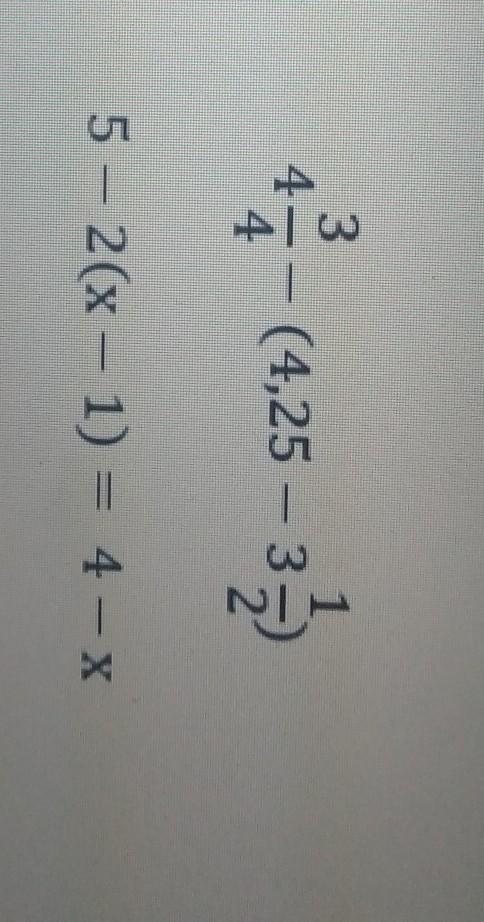 4 3/4 − (4,25 − 3 1/2)
5 − 2(x − 1) = 4 − x